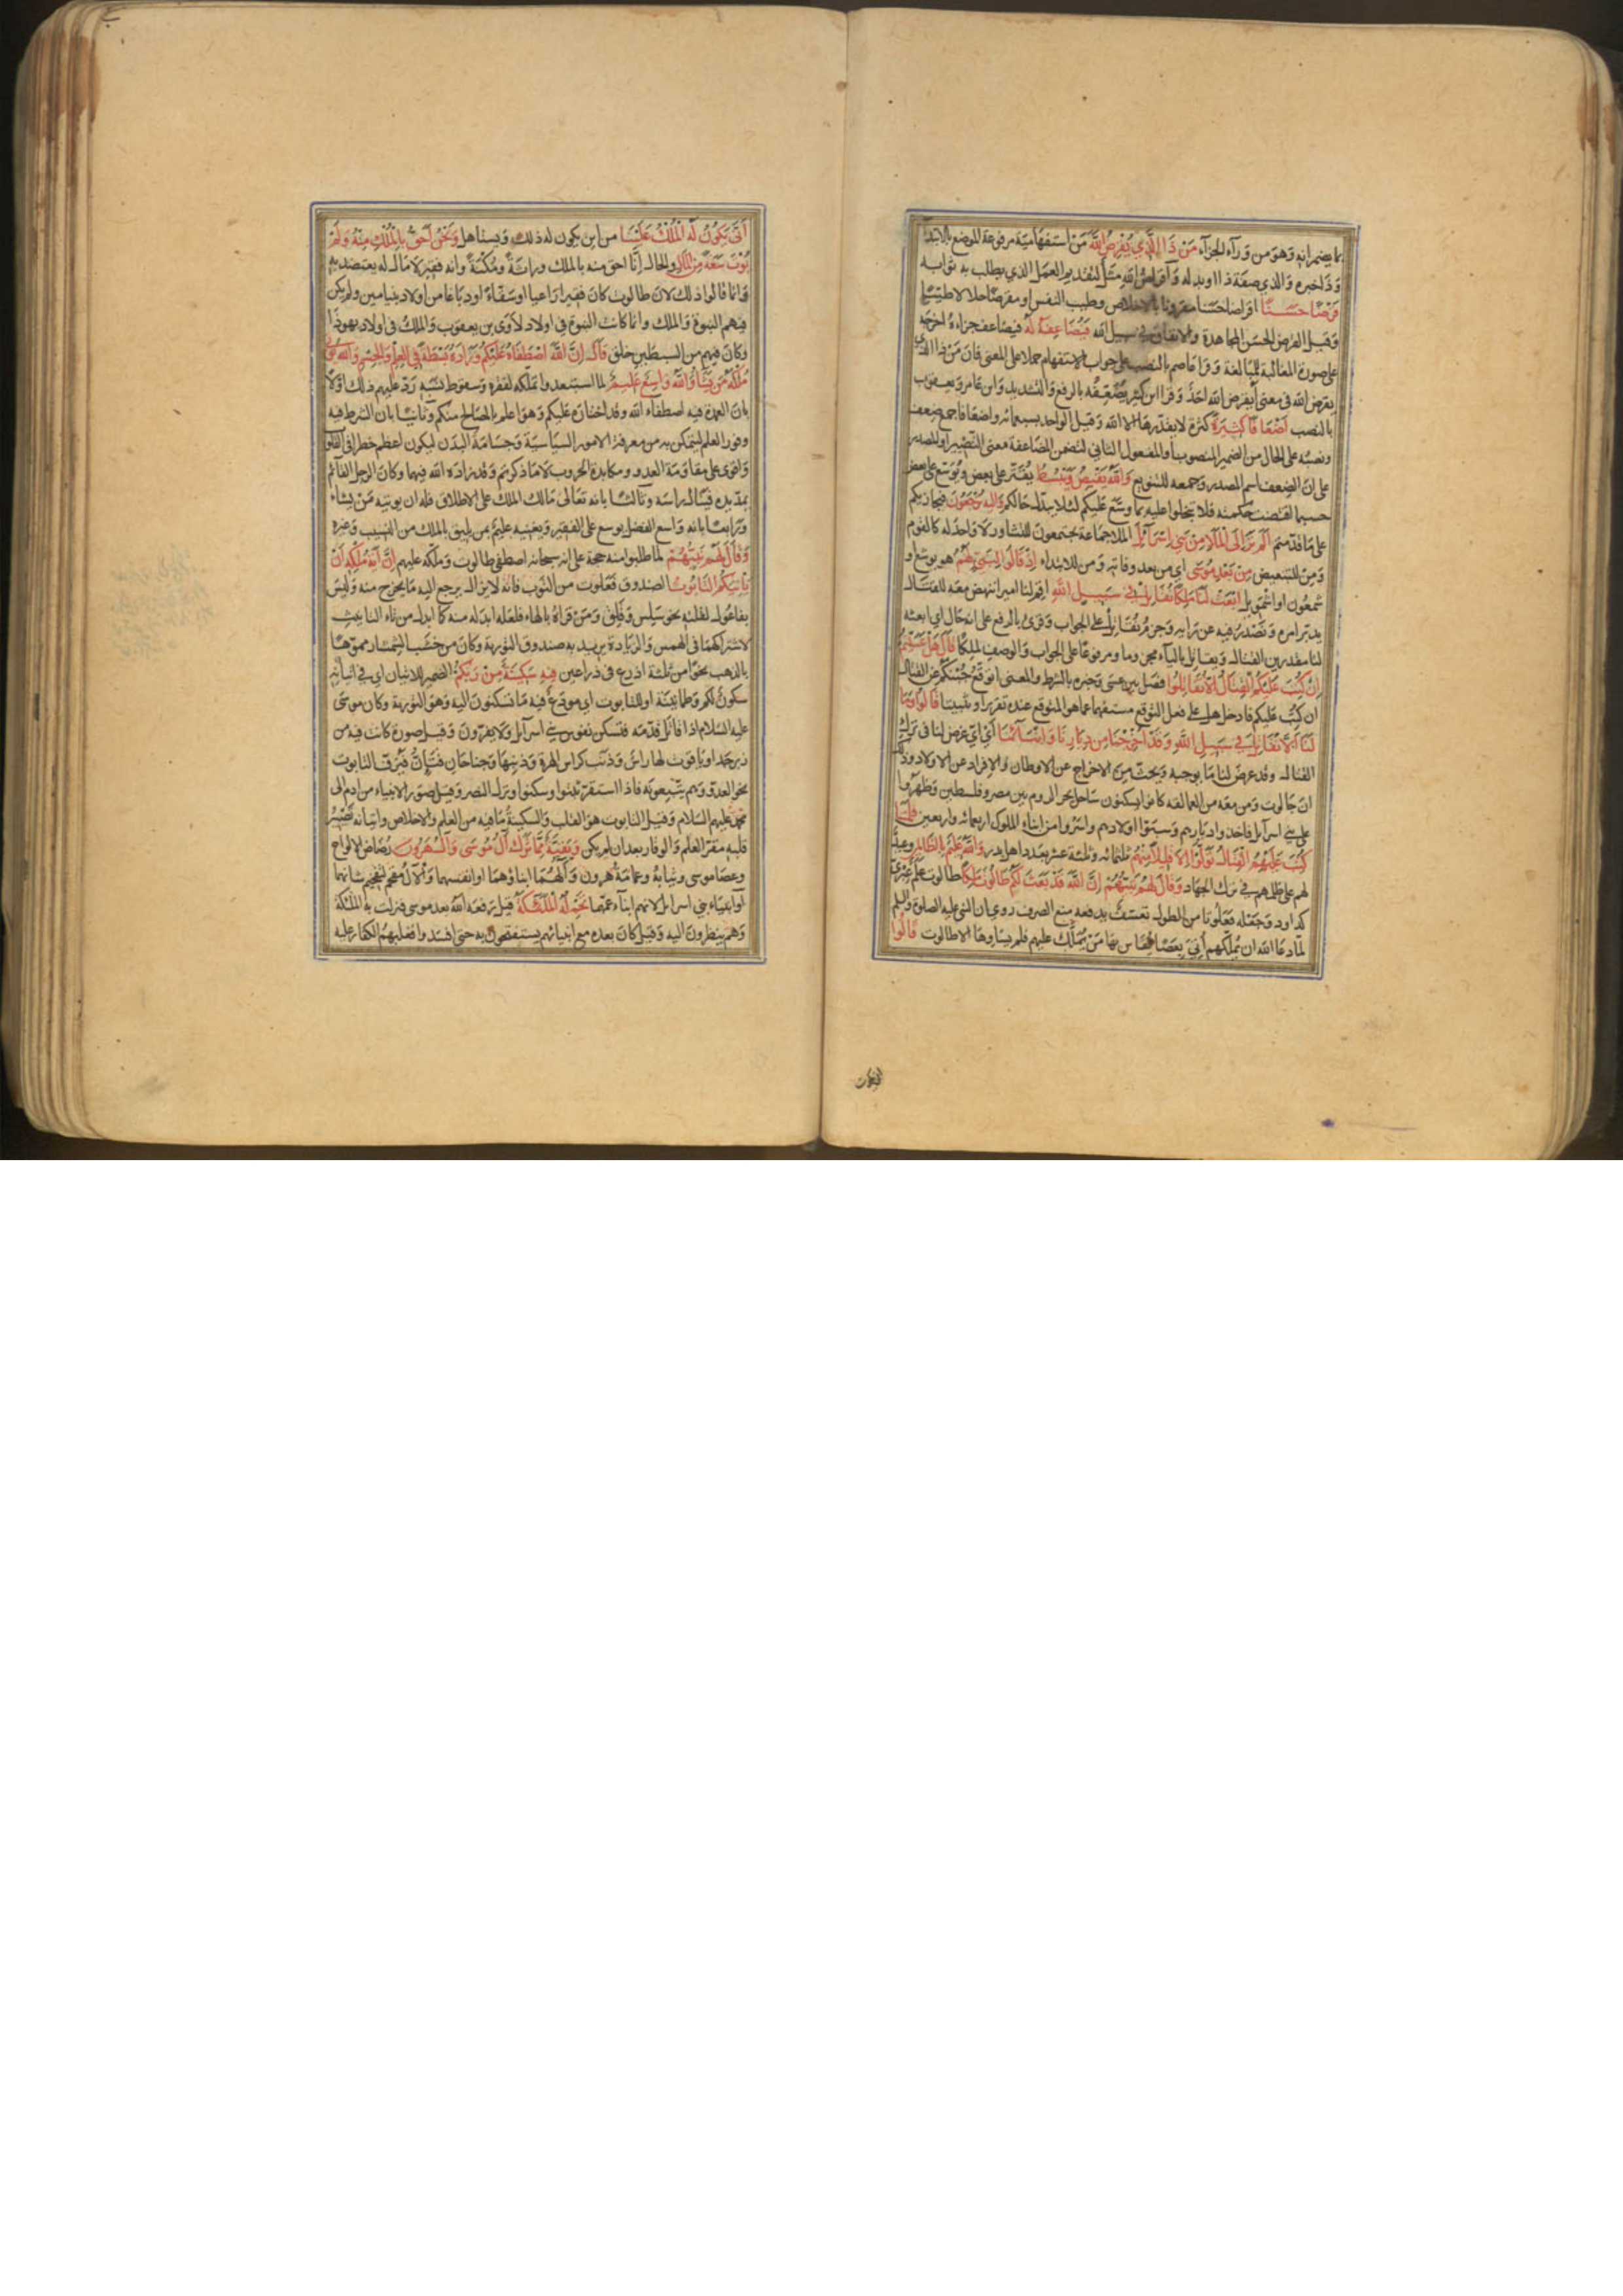 بما يضمرانه وهو من وراء الجزاء من ذا الذي يقرض الله من استفهامية مرفوعة الموضع بالابتداء
وذا خبره والذي صفة ذا او بدله واقراض الله مثل لتقديم العمل الذي يطلب به ثوابه
قرضا حسنا اقراضا حسنا مقرونا بالاخلاص وطيب النفس او مقرضا حلالا طيبا
وقيل القرض الحسن المجاهدة والانفاق في سبيل الله فيضاعفه له فيضاعف جزاءه اخرجه
على صورة المغالبة للمبالغة وقرا عاصم بالنصب على جواب الاستفهام حملا على المعنى فان من ذا الذي
يقرض الله في معنى ايقرض الله احد وقرا ابن كثير يضعفه بالرفع والتشديد وابن عامر ويعقوب
بالنصب اضعافا كثيرة كثرة لا يقدرها الا الله وقيل الواحد بسبعمائه واضعافا جمع ضعف
ونصبه على الحال من الضمير المنصوب او المفعول الثاني لتضمن المضاعفة معنى التصيير او المصدر
على ان الضعف اسم المصدر وجمعه للتنويع والله يقبض ويبسط يقتر على بعض ويوسع على بعض
حسبما اقتضت حكمته فلا تبخلوا عليه بما وسع عليكم لئلا يبدل حالكم واليه ترجعون فيجازيكم
على ما قدمتم الم تر الى الملا من بني اسرائيل الملا جماعة يجتمعون للتشاور لا واحد له كالقوم
ومن للتبعيض من بعد موسى اي من بعد وفاته ومن للابتداء اذ قالوا لنبي لهم هو يوشع او
شمعون او اشمويل ابعث لنا ملكا نقاتل في سبيل الله اقم لنا اميرا ننهض معه للقتال
يدبر امره ونصدر فيه عن رايه وجزم نقاتل على الجواب وقرئ بالرفع على انه حال اي ابعثه
لنا مقدرين القتال ويقاتل بالياء مجزوما ومرفوعا على الجواب والوصف لملكا قال هل عسيتم
ان كتب عليكم القتال الا تقاتلوا فصل بين عسى وخبره بالشرط والمعنى اتوقع جبنكم عن القتال
ان كتب عليكم فادخل هل على فعل التوقع مستفهما عما هو المتوقع عنده تقريرا وتثبيتا قالوا وما
لنا الا نقاتل في سبيل الله وقد اخرجنا من ديارنا وابنائنا اي اي غرض لنا في ترك
القتال وقد عرض لنا ما يوجبه ويحث من الاخراج عن الاوطان والافراد عن الاولاد وذلك
ان جالوت ومن معه من العمالقة كانوا يسكنون ساحل بحر الروم بين مصر وفلسطين وظهروا
على بني اسرآيل فاخذوا ديارهم وسبوا اولادهم واسروا من ابناء الملوك اربعمائه واربعين فلما
كتب عليهم القتال تولوا الا قليلا منهم ثلثمائه وثلثة عشر بعدد اهل بدر والله عليم بالظالمين وعيد
لهم على ظلمهم في ترك الجهاد وقال لهم نبيهم ان الله قد بعث لكم طالوت ملكا طالوت علم عبري
كداود وجعله فعلوتا من الطول تعسف يدفعه منع الصرف روي ان النبي عليه الصلوة والسلم
لما دعا الله ان يملكهم اتي بعصا يقاس بها من يملك عليهم فلم يساوها الا طالوت قالوا
انى يكون له الملك علينا من اين يكون له ذلك ويستاهل ونحن احق بالملك منه ولم
يؤت سعة من المال والحال انا احق منه بالملك وراثة ومكنة وانه فقير لا مال له يعتضد به
وانما قالوا ذلك لان طالوت كان فقيرا راعيا او سقاء او دباغا من اولاد بنيامين ولم يكن
فيهم النبوة والملك وانما كانت النبوة في اولاد لاوى بن يعقوب والملك في اولاد يهوذا
وكان فيهم من السبطين خلق قال ان الله اصطفاه عليكم وزاده بسطة في العلم والجسم والله يؤتي
ملكه من يشاء والله واسع عليم لما استبعدوا تملكه لفقره وسقوط نسبه رد عليهم ذلك اولا
بان العمدة فيه اصطفاء الله وقد اختاره عليكم وهو اعلم بالمصالح منكم وثانيا بان الشرط فيه
وفور العلم ليتمكن به من معرفة الامور السياسية وجسامة البدن ليكون اعظم خطرا في القلوب
واقوى على مقاومة العدو ومكابدة الحروب لا ما ذكرتم وقد زاده الله فيهما وكان الرجل القائم
يمد يده فينال راسه وثالثا بانه تعالى مالك الملك على الاطلاق فله ان يؤتيه من يشاء
ورابعا بانه واسع الفضل يوسع على الفقير ويغنيه عليم بمن يليق بالملك من النسيب وغيره
وقال لهم نبيهم لما طلبوا منه حجة على انه سبحانه اصطفى طالوت وملكه عليهم ان آية ملكه ان
ياتيكم التابوت الصندوق فعلوت من التوب فانه لا يزال يرجع اليه ما يخرج منه وليس
بفاعول لقلته نحو سلس وقلق ومن قراه بالهاء فلعله ابدله منه كما ابدل من تاء التانيث
لاشتراكهما في الهمس والزيادة يريد به صندوق التورية وكان من خشب الشمشار مموها
بالذهب نحوا من ثلثة اذرع في ذراعين فيه سكينة من ربكم الضمير للاتيان اي في اتيانه
سكون لكم وطمانينة او للتابوت اي مودع فيه ما تسكنون اليه وهو التورية وكان موسى
عليه السلام اذا قاتل قدمه فتسكن نفوس بني اسرآيل ولا يفرون وقيل صورة كانت فيه من
زبرجد او ياقوت لها راس وذنب كراس الهرة وذنبها وجناحان فتئن فيزف التابوت
نحو العدو وهم يتبعونه فاذا استقر ثبتوا وسكنوا ونزل النصر وقيل صور الانبياء من ادم الى
محمد عليهم السلام وقيل التابوت هو القلب والسكينة ما فيه من العلم والاخلاص واتيانه تصيير
قلبه مقر العلم والوقار بعد ان لم يكن وبقية مما ترك آل موسى وآل هرون رضاض الالواح
وعصا موسى وثيابه وعمامة هرون وآلهما ابناؤهما او انفسهما والآل مقحم لتفخيم شانهما
او انبياء بني اسرائيل لانهم ابناء عمهما تحمله الملئكة قيل رفعه الله بعد موسى فنزلت به الملئكة
وهم ينظرون اليه وقيل كان بعده مع انبيائهم يستفتحون به حتى افسدوا فغلبهم الكفار عليه